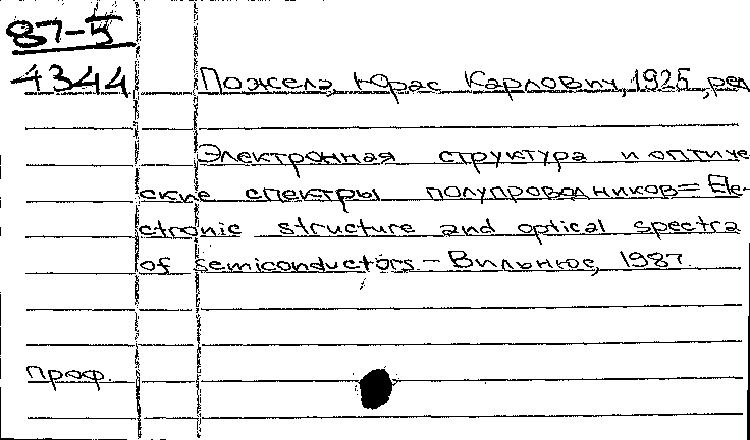 87-5
4344 Пожела, Юрас Карлович, 1925, ред
Электронная структура и оптиче
ские спектры полупроводников = Ele-
ctronic structure and optical spectra
of semiconductors - Вильнюс, 1987.
проф.